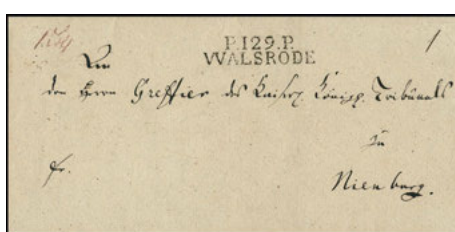 P.129.P.
WALSRODE
1
An
den Herrn Greffier des Kaiserl. Königl. Tribunals
zu
fr.
Nienburg.